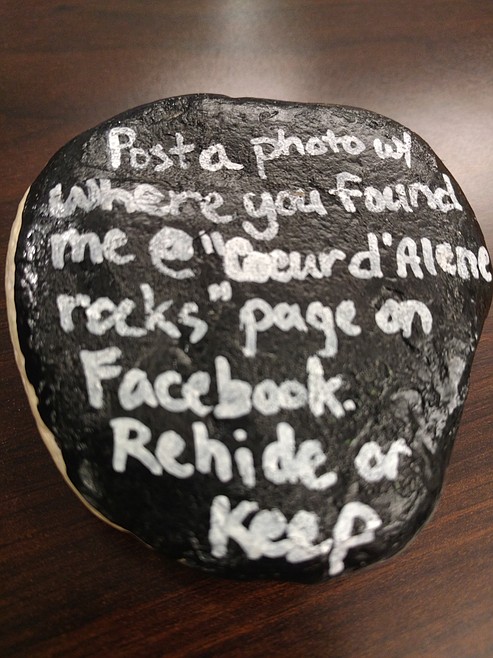 Post a photo w/
where you found
me @ "Coeur d'Alene
rocks" page on
Facebook.
Rehide or
Keep